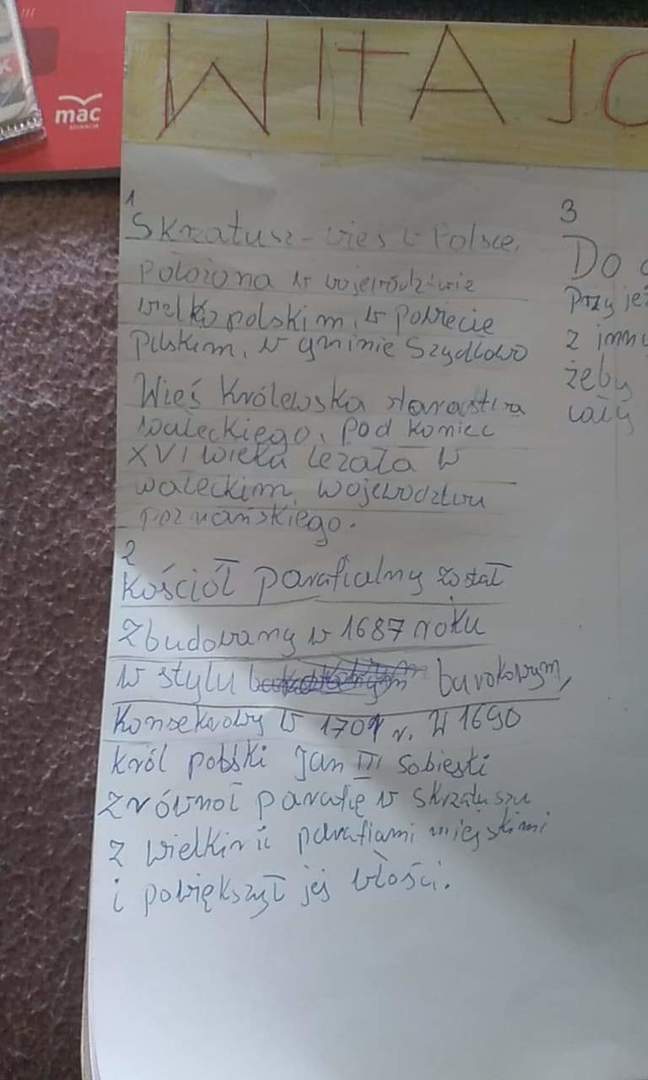 mac
EDUKACJA
WITAJC
1
Skrzatusz - wieś w Polsce,
położona w województwie
wielkopolskim, w powiecie
pilskim, w gminie Szydłowo
Wieś Królewska starostwa
wałeckiego, pod koniec
XVI wieku leżała w
wałeckim województwu
poznańskiego.
2
Kościół parafialny został
zbudowany w 1687 roku
w stylu barokowym,
Konsekrowy w 1701 r. W 1690
król polski Jan III Sobieski
zrównoł parafię w Skrzatuszu
z wielkimi parafiami miejskimi
i powiększył jej włości.
3
Do
Przyje
z inny
żeby
cały